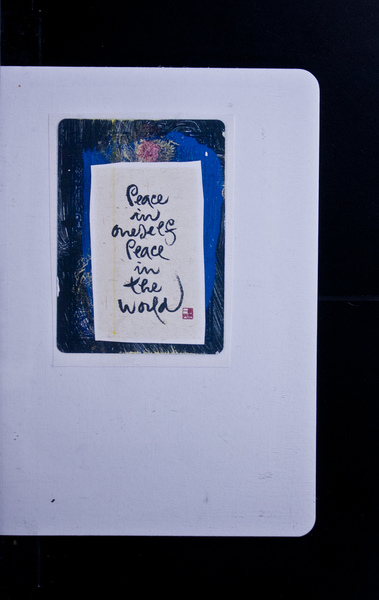 Peace
in
oneself
Peace
in
the
world